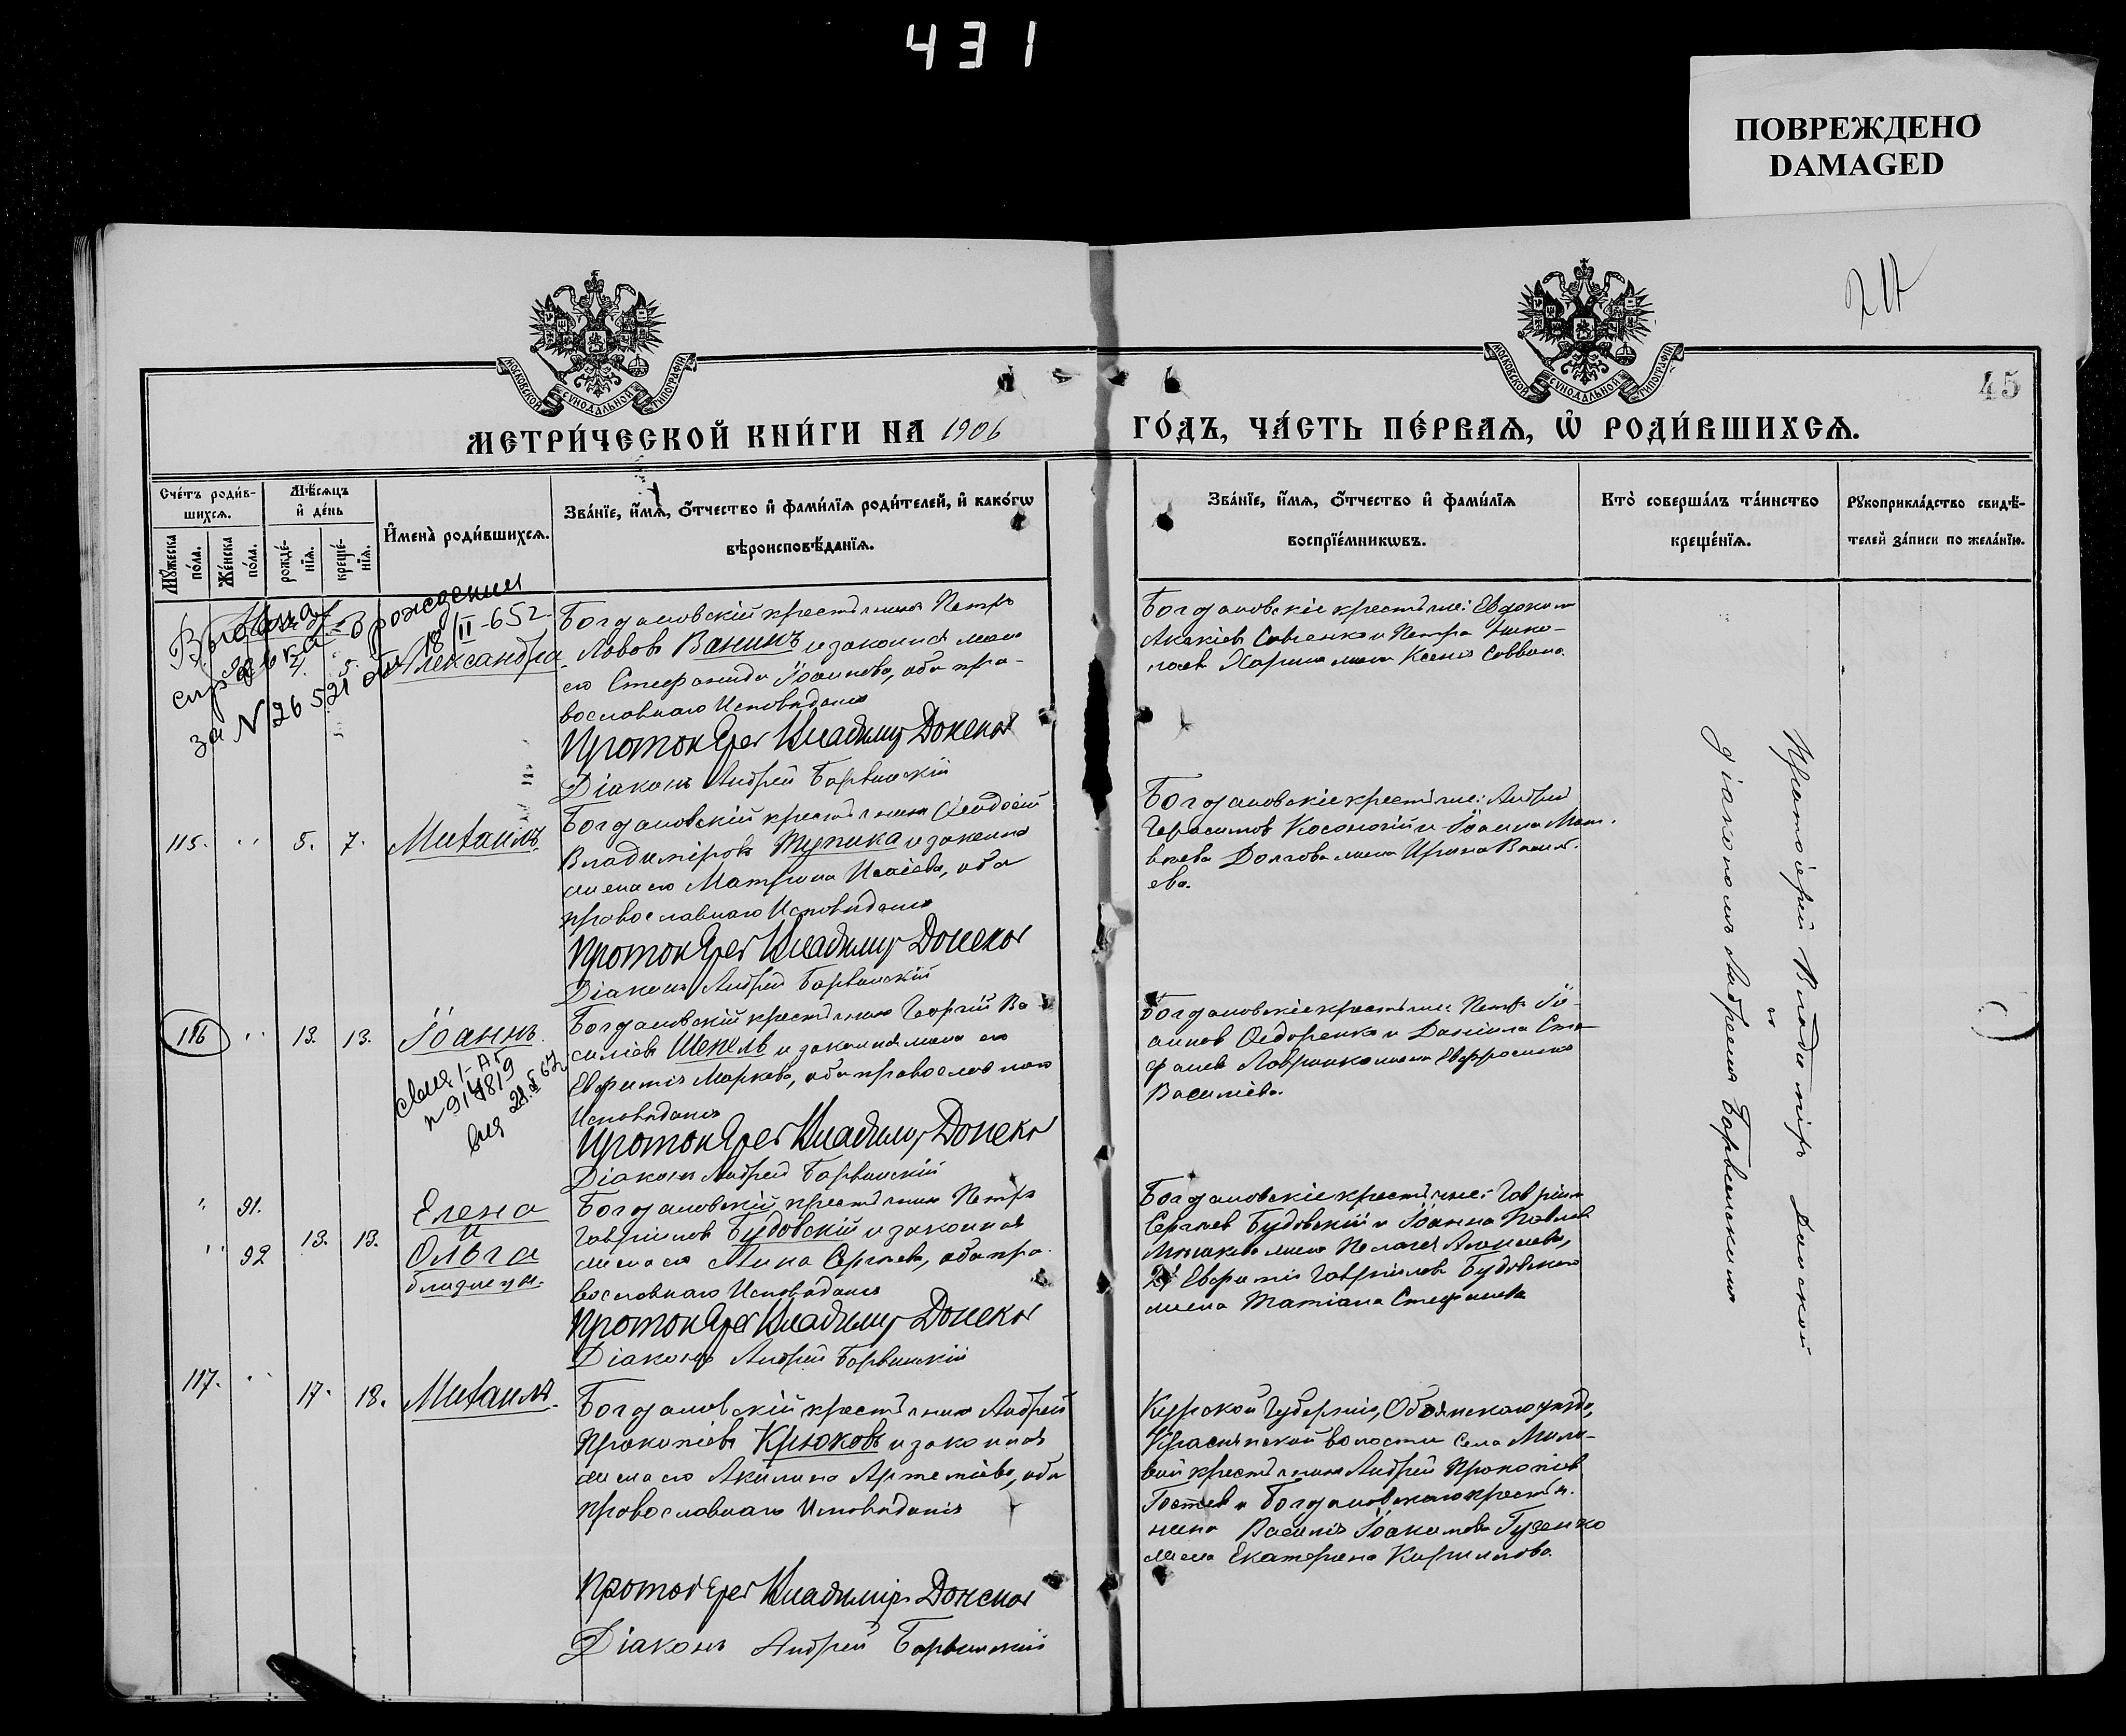 431
ПОВРЕЖДЕНО
DAMAGED
МОСКОВСКОЙ СѴНОДАЛЬНОЙ ТИПОГРАФІИ
МОСКОВСКОЙ СѴНОДАЛЬНОЙ ТИПОГРАФІИ
45
МЕТРИ́ЧЕСКОЙ КНИ́ГИ НА 1906 ГО́ДЪ, ЧА́СТЬ ПЕ́РВАѦ, Ѡ҆ РОДИ́ВШИХСѦ.
Сче́тъ роди́в-
шихсѧ.
Мѣ́сѧцъ
и҆ де́нь
Мꙋ́жеска
по́ла.
Же́нска
по́ла.
рожде́-
нїѧ.
креще́-
нїѧ.
И҆мена̀ роди́вшихсѧ.
Зва́нїе, и҆́мѧ, ѻ҆́тчество и҆ фами́лїѧ роди́телей, и҆ како́гѡ
вѣроисповѣ́данїѧ.
Зва́нїе, и҆́мѧ, ѻ҆́тчество и҆ фами́лїѧ
воспрїе́мникѡвъ.
Кто̀ соверша́лъ та́инство
креще́нїѧ.
Рꙋкоприкла́дство свидѣ́-
телей за́писи по жела́нїю.
Выдана
справка о рождении
за N 26521 от 18/II-652
5.
Александра
Богдановскій крестьянинъ Петръ
Львовъ Ванинъ и законная жена
его Стефанида Іоаннова, оба пра-
вославнаго Исповѣданія
Протоіерей Владимір Донской
Діаконъ Андрей Барвинскій
Богдановскіе крестьяне: Евдоким
Акакіевъ Савченко и Петра Нико-
лаева жена Ксенія Саввина.
115. " 5. 7. Михаилъ.
Богдановскій крестьянинъ Ѳеодосій
Владиміровъ Тупика и законная
жена его Матрона Исаіева, оба
православнаго Исповѣданія
Протоіерей Владимір Донской
Діаконъ Андрей Барвинскій
Богдановскіе крестьяне: Андрей
Герасимовъ Косоногій и Іоанна Мат-
вѣева Долгова жена Ирина Василь-
ева.
116 " 13. 13. Іоаннъ.
Богдановскій крестьянинъ Георгій Ва-
силіевъ Шепель и законная жена его
Евфимія Маркова, оба православнаго
Исповѣданія
Протоіерей Владимір Донской
Діаконъ Андрей Барвинскій
Богдановскіе крестьяне: Петръ Іо-
анновъ Ѳедоренко и Даніила Сте-
фанова Лавриненко жена Евфросинія
Василіева.
" 91.
" 92 13. 13.
Елена
и
Ольга
близнецы.
Богдановскій крестьянинъ Петръ
Гавріиловъ Будовскій и законная
жена его Анна Сергіева, оба пра-
вославнаго Исповѣданія
Протоіерей Владимір Донской
Діаконъ Андрей Барвинскій
Богдановскіе крестьяне: Гавріилъ
Сергіевъ Будовскій и Іоанна Павлова
жена Пелагея
2) Евфимія Гавріилова Будовскаго
жена Татіана Стефанова
117. " 17. 18. Михаилъ.
Богдановскій крестьянинъ Андрей
Прокопіевъ Крюковъ и законная
жена его Акилина Артеміева, оба
православнаго Исповѣданія
Протоіерей Владимір Донской
Діаконъ Андрей Барвинскій
Курской Губерніи, Обоянскаго уѣзда,
волости Села
крестьянинъ Андрей Прокопіевъ
Гостевъ и Богдановскаго крестья-
нина Василія Іоакимова Гузенко
жена Екатерина Кириллова.
Протоіерей Владиміръ Донской
съ
діакономъ Андреемъ Барвинскимъ